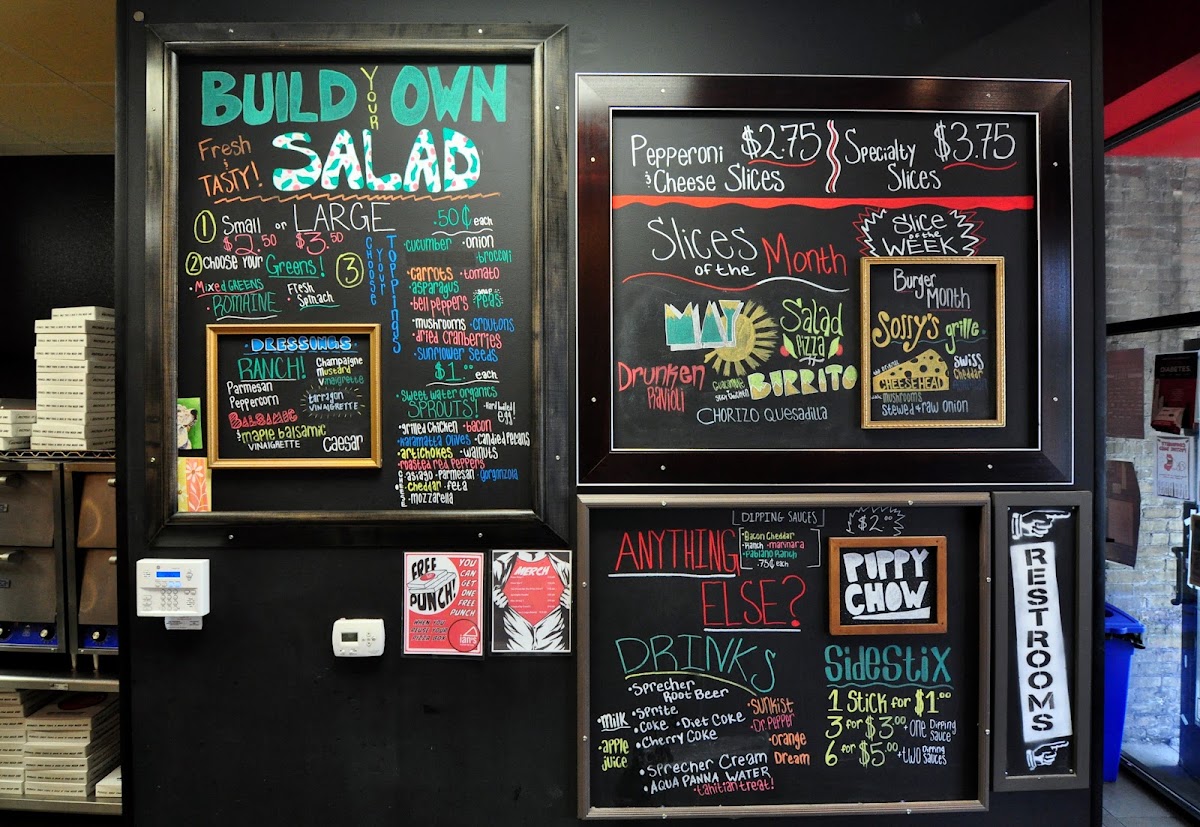 BUILD YOUR OWN
Fresh & TASTY!
SALAD
1 Small or LARGE
$2.50 $3.50
2 Choose Your Greens!
• Mixed GREENS
ROMAINE
• Fresh Spinach
3 CHOOSE YOUR TOPPINGS
.50¢ each
• cucumber • onion
• broccoli
• carrots • tomato
• asparagus
• bell peppers • snap Peas
• mushrooms • croutons
• dried cranberries
• sunflower seeds
$1.00 each
• sweet water organics
SPROUTS! • Hard boiled egg!
• grilled chicken • bacon
• kalamatta olives • candied pecans
• artichokes • walnuts
• roasted red peppers
CHEESE
• asiago • parmesan • gorgonzola
• cheddar • feta
• mozzarella
• DRESSINGS
RANCH!
Parmesan Peppercorn
Balsamic
& maple balsamic
VINAIGRETTE
Champagne
Mustard
Vinaigrette
tarragon
VINAIGRETTE
Caesar
Pepperoni & Cheese Slices $2.75
Specialty Slices $3.75
Slices of the Month
MAY
Salad pizza
Drunken Ravioli
BURRITO
CHORIZO QUESADILLA
SLICE of the WEEK
Burger Month
grille
CHEESEHEAD
swiss
cheddar
mushrooms
Stewed & raw onion
ANYTHING ELSE?
DIPPING SAUCES
• Bacon Cheddar
• Ranch • marinara
• Pablano Ranch
.75¢ each
DRINKS
• Sprecher Root Beer
• Sprite
• milk • Coke • Diet Coke
• Cherry Coke
• apple juice
• Sunkist
• Dr. Pepper
• orange Dream
• Sprecher Cream
• AQUA PANNA WATER
• tahitian treat!
$2.00
PUPPY CHOW
SideStiX
1 Stick for $1.00
3 for $3.00 + ONE Dipping Sauce
6 for $5.00 + TWO Dipping Sauces
RESTROOMS
FREE PUNCH!
YOU CAN GET ONE FREE PUNCH
WHEN YOU REUSE YOUR PIZZA BOX
ian's
MERCH
DIABETES